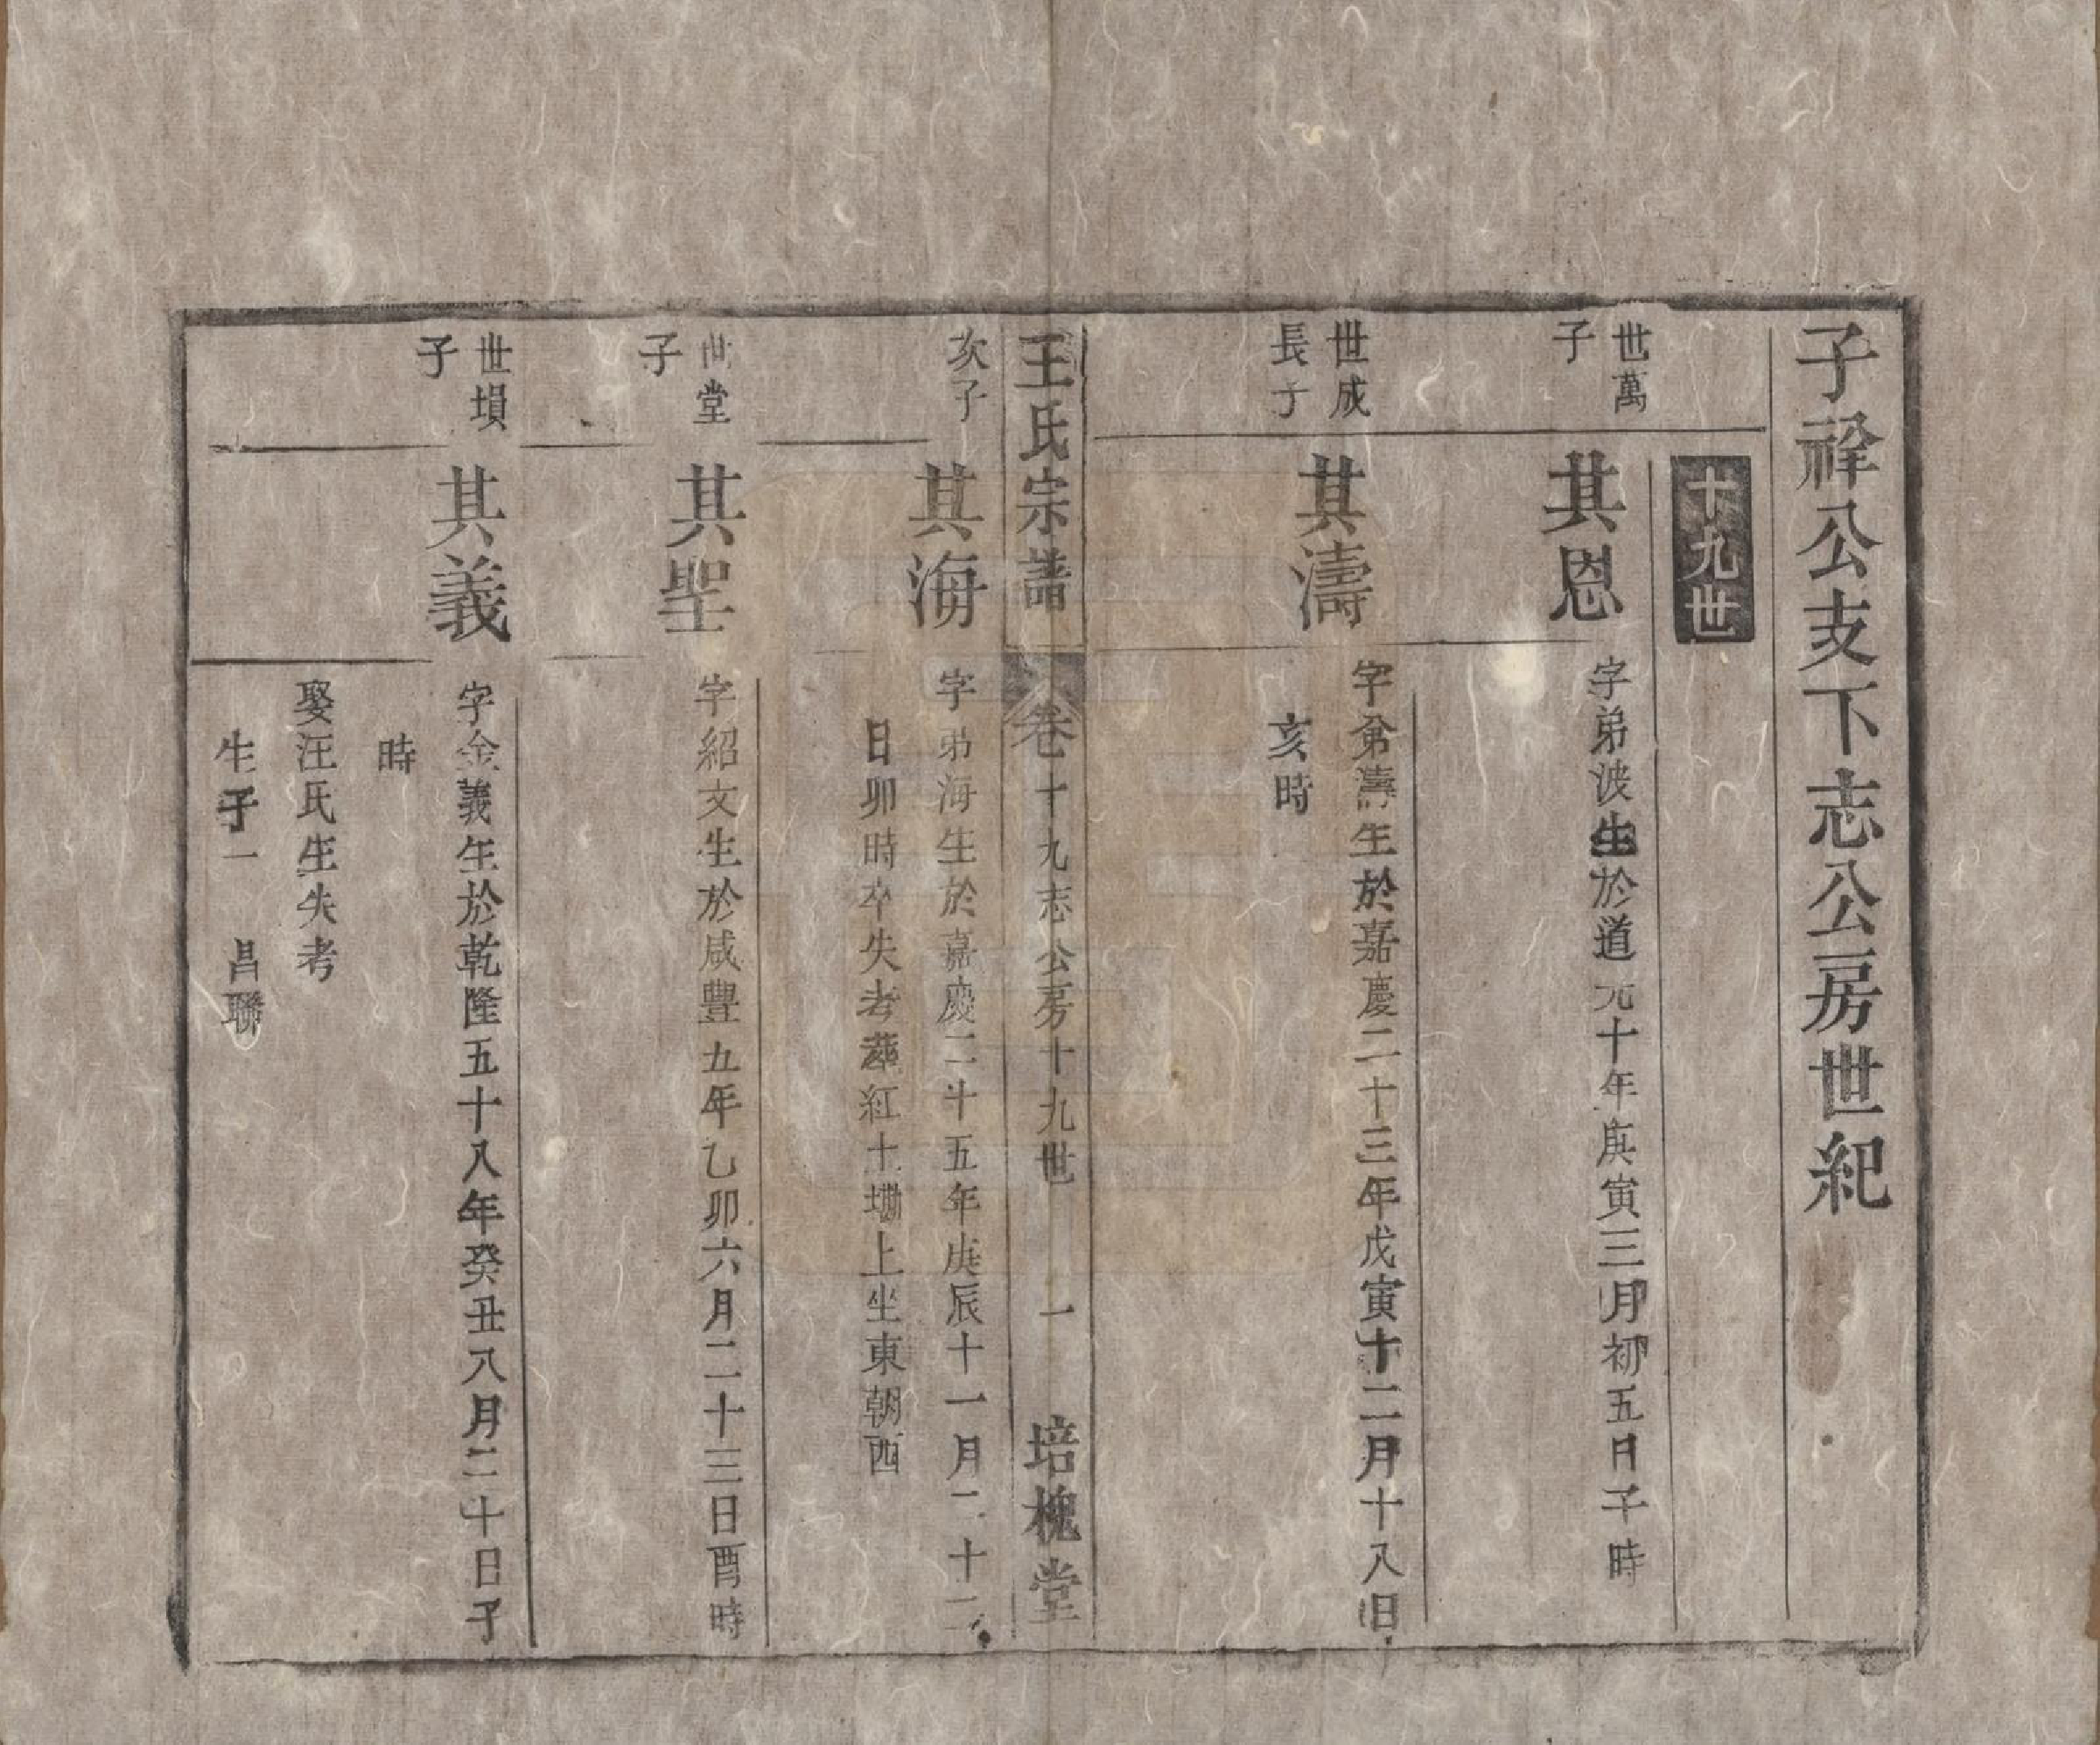 子祥公支下志公房世紀
十九世
世萬
子
其恩
字弟波生於道光十年庚寅三月初五日子時
世成
長子
其濤
字弟濤生於嘉慶二十三年戊寅十二月十八日
亥時
王氏宗譜
卷十九志公房十九世
一
培槐堂
次子
其海
字弟海生於嘉慶二十五年庚辰十一月二十二
日卯時卒失考葬紅土塝上坐東朝西
世堂
子
其聖
字紹文生於咸豐五年乙卯六月二十三日酉時
世塤
子
其義
字金義生於乾隆五十八年癸丑八月二十日子
時
娶汪氏生失考
生子一　昌聯